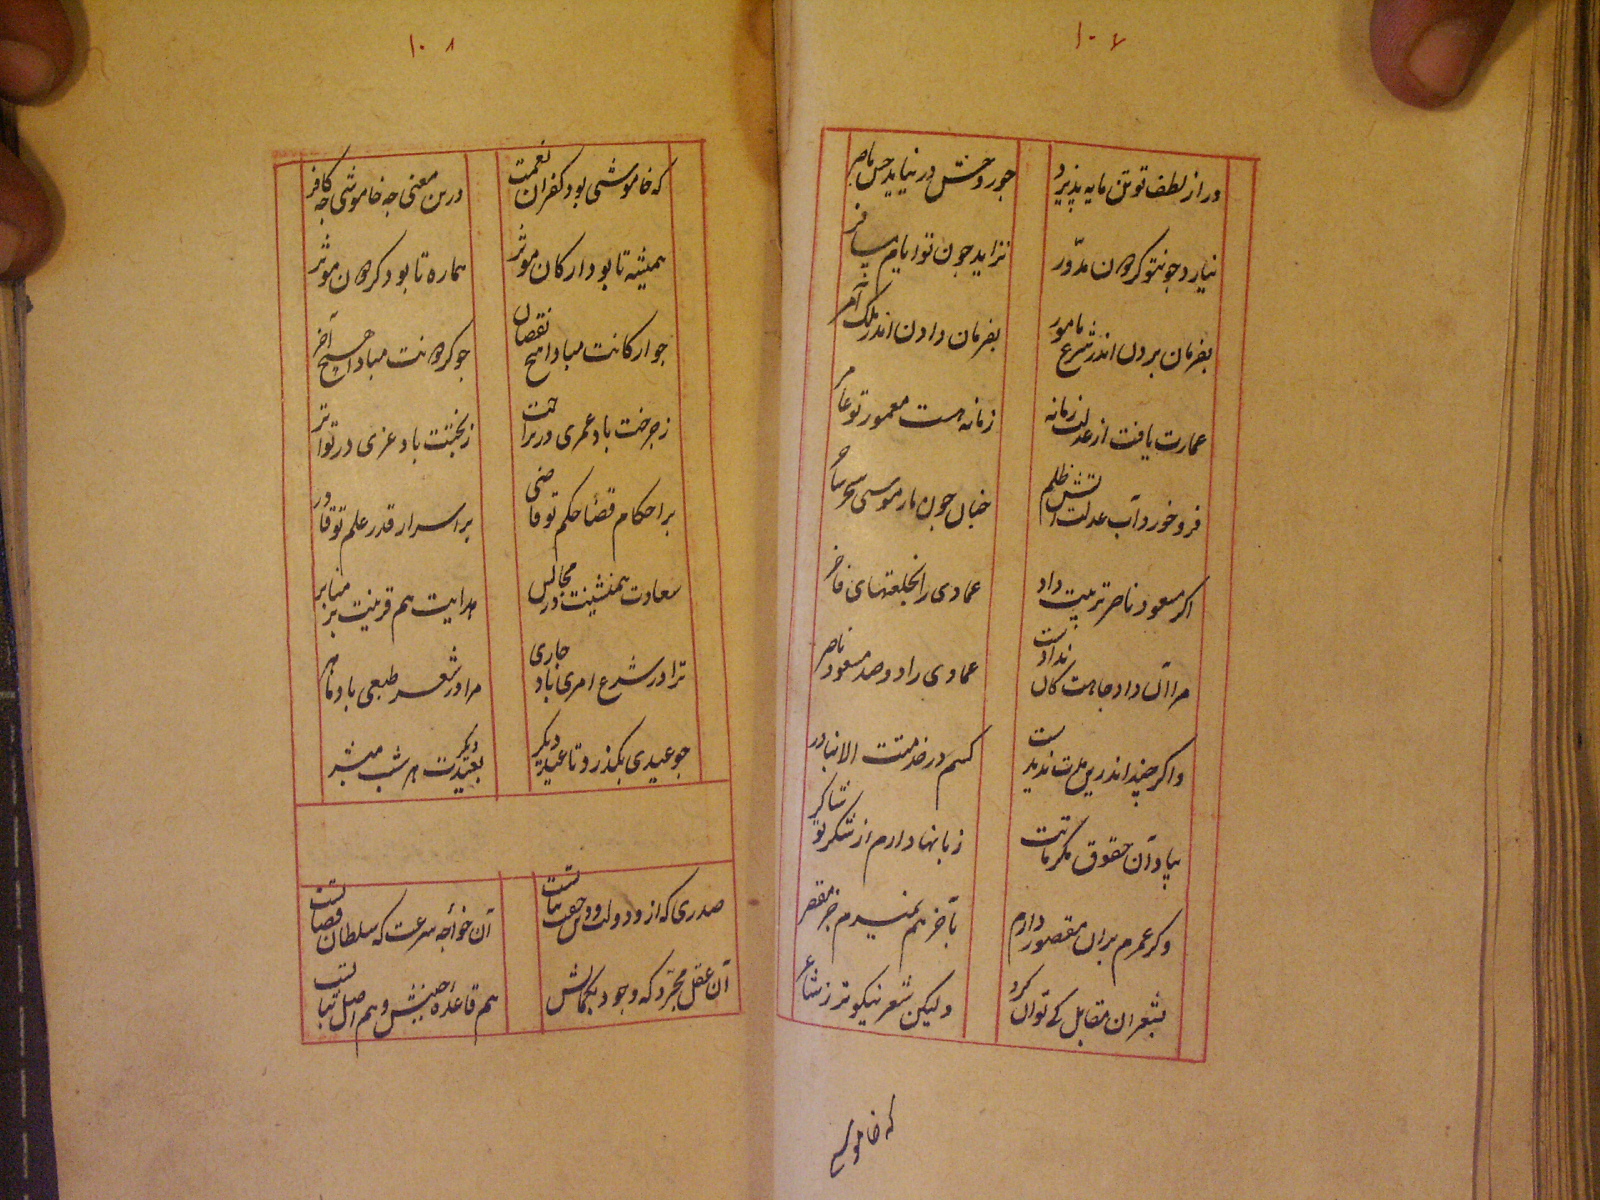 ۱۰۷
ور از لطف تو تن مایه پذیرد جو روحش در نیابد حس ماصر
نیارد جونتو کردون مدّور نزاید جون تو ایام مسافر
بفرمان بردن اندر شرع مامور بفرمان دادن اندر ملک آمر
عمارت یافت از عدلت زمانه زمانه هست معمور تو عامر
فرو خورد آب عدلت آتش ظلم جنان جون مار موسی سحر ساحر
اکر مسعود ناصر تربیت داد عمادی را بخلعتهای فاخر
مرا آن داد جاهت کان ندادست عمادی را دو صد مسعود ناصر
واکر چند اندرین مدت ندیدست کسم در خدمتت الا نبادر
بیاد آن حقوق مکرماتت زبانها دارم از شکر تو شاکر
وکر عمرم بران مقصور دارم بآخر هم نمیرم جز مقصر
بشعر ان مقابل کی توان کرد ولیکن شعر نیکوتر ز شاعر
که خاموشی
۱۰۸
که خاموشی بود کفران نعمت درین معنی جه خاموشی جه کافر
همیشه تا بود ارکان موثر هماره تا بود کردون موثر
جو ارکانت مبادا هیچ نقصان جو کردونت مبادا هیچ آخر
ز جرخت باد عمری در براحت ز بختت باد عزی در تواتر
بر احکام قضا حکم تو قاضی بر اسرار قدر علم تو قادر
سعادت همنشینت در مجالس هدایت هم قرینت بر منابر
ترا در شرع امری باد جاری مرا در شعر طبعی باد ماهر
جو عیدی بکذرد تا عید دیکر بعیدت هر شب دیکر مبشر
صدری که ازو دولت و دین جفت ثباتست آن خواجه شرعست که سلطان قضاتست
آن عقل مجرد که وجود بکمالش هم قاعده جنبش و هم اصل ثباتست